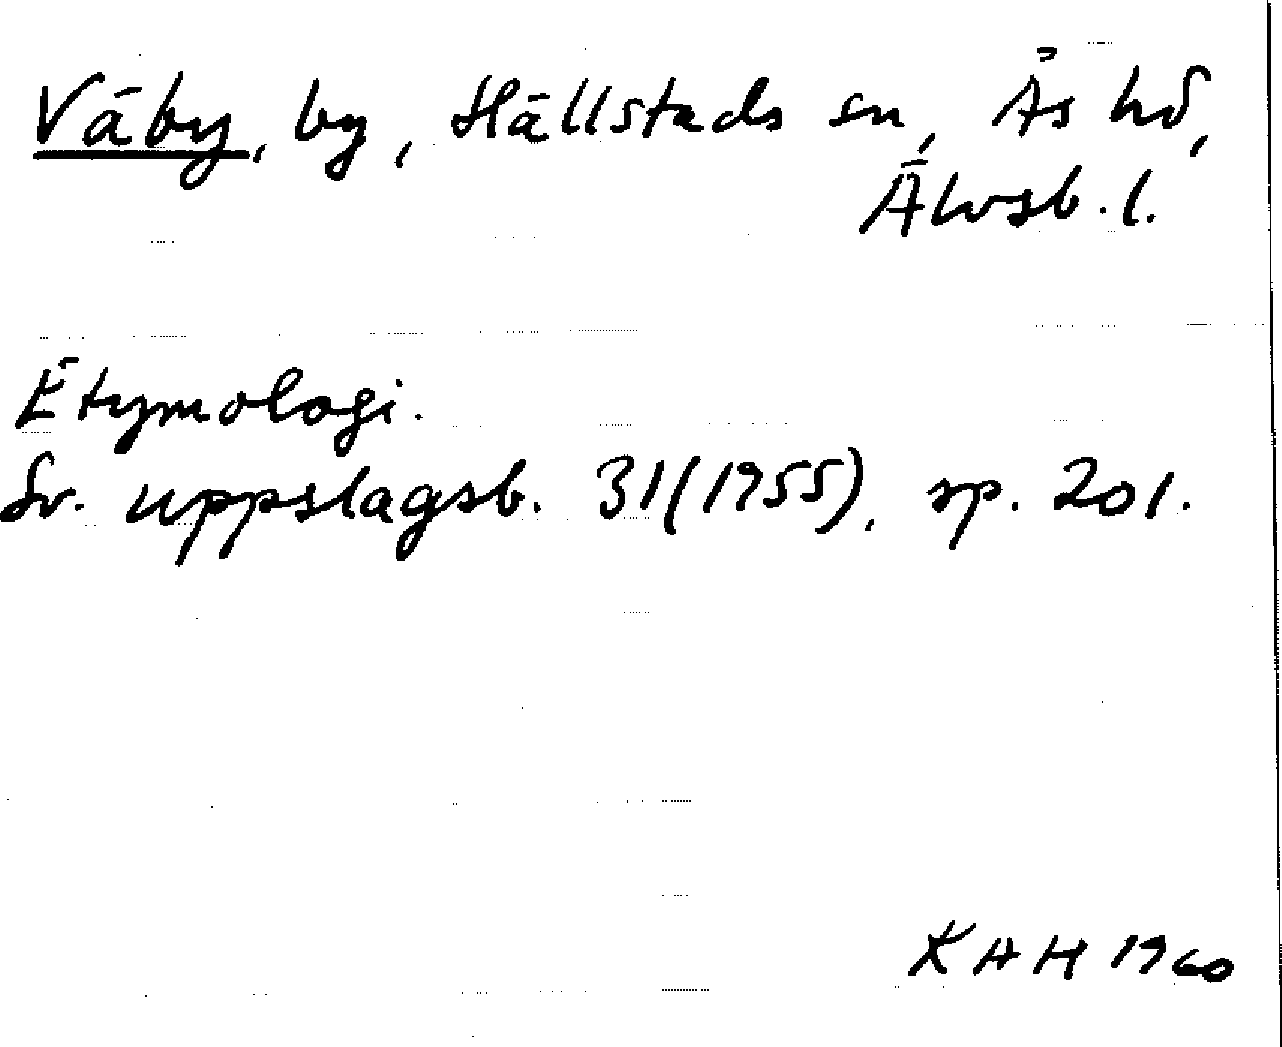 Väby, by, Hällstads sn, Ås hd,
Älvsb. l.
Etymologi.
Sv. uppslagsb. 31(1955), sp. 201.
KAH 1960